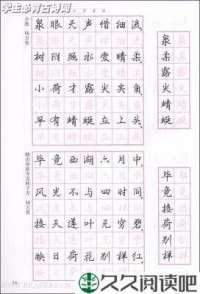 学生必背古诗词
小池 杨万里
泉眼无声惜细流
树阴照水爱晴柔
小荷才露尖尖角
早有蜻蜓立上头
泉柔露尖蜻蜓
晓出净慈寺送林子方 杨万里
毕竟西湖六月中
风光不与四时同
接天莲叶无穷碧
映日荷花别样红
毕竟接荷别样
久久阅读吧